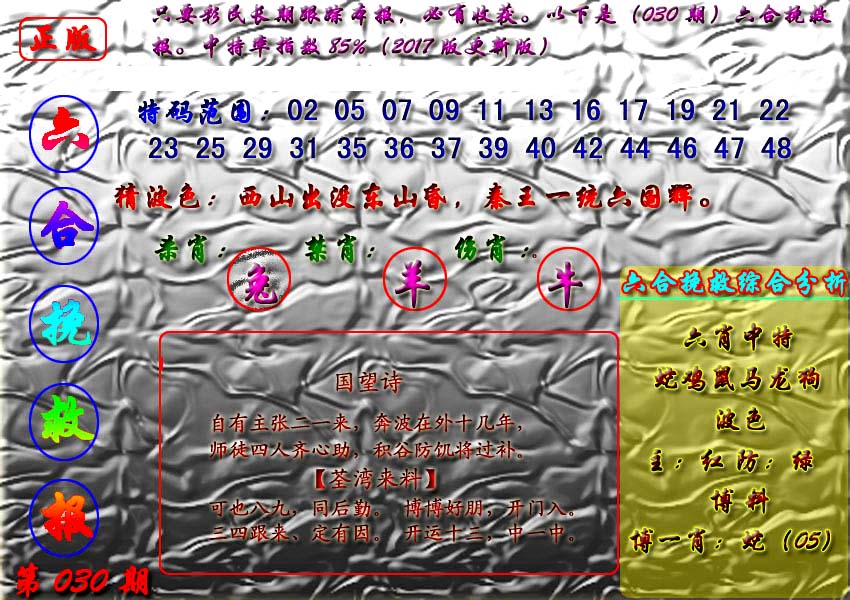 正版
只要彩民长期跟踪本报，必有收获。以下是（030 期）六合挽救
报。中特率指数 85%（2017 版更新版）
六合挽救报
第 030 期
特码范围：02 05 07 09 11 13 16 17 19 21 22
23 25 29 31 35 36 37 39 40 42 44 46 47 48
猜波色：西山出没东山昏，秦王一统六国辉。
杀肖：兔 禁肖：羊 伤肖：牛
国望诗
自有主张二一来，奔波在外十几年，
师徒四人齐心助，积谷防饥将过补。
【荃湾来料】
可也八九，同后勤。 博博好朋，开门入。
三四跟来、定有因。 开运十三，中一中。
六合挽救综合分析
六肖中特
蛇鸡鼠马龙狗
波色
主：红 防：绿
博料
博一肖：蛇（05）